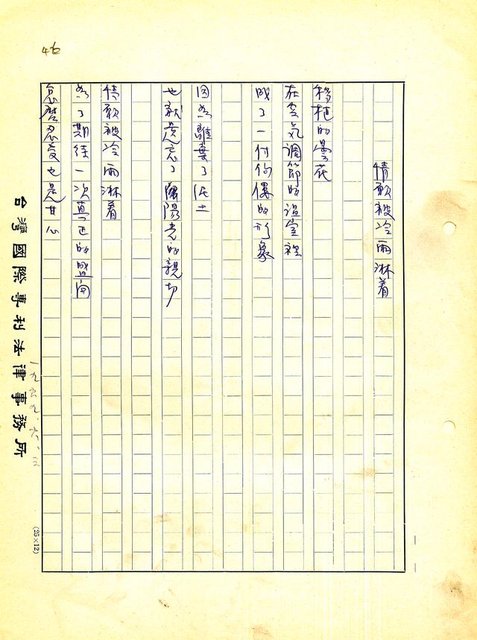 46
情願被冷雨淋着
移植的曇花
在空氣調節的溫室裡
成了一付傀儡的形象
因為離棄了泥土
也就忘了陽光的親切
情願被冷雨淋着
為了期待一次真正的盛開
怎麼忍受也是甘心
一九六九、六、三
台灣國際專利法律事務所
(25×12)